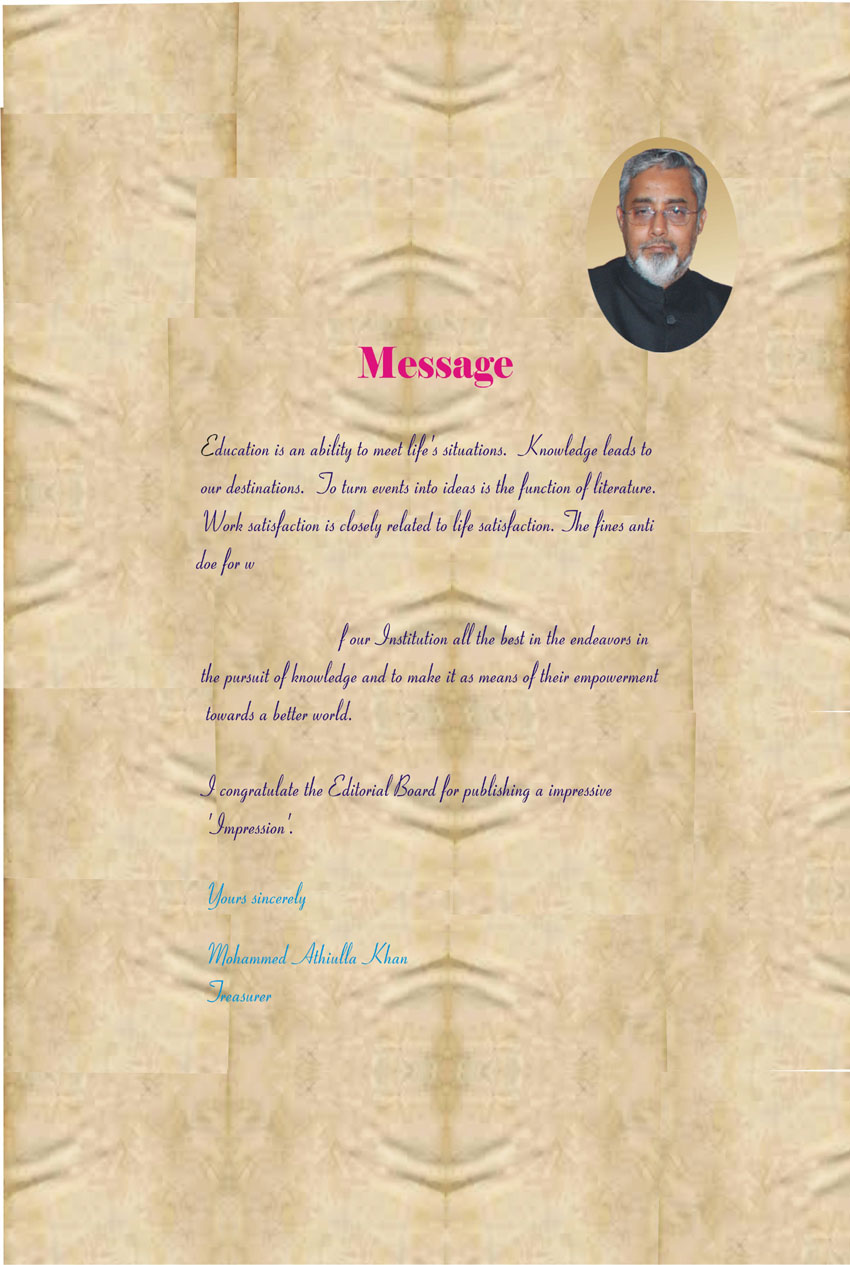 Message
Education is an ability to meet life's situations. Knowledge leads to
our destinations. To turn events into ideas is the function of literature.
Work satisfaction is closely related to life satisfaction. The fines anti
doe for w
f our Institution all the best in the endeavors in
the pursuit of knowledge and to make it as means of their empowerment
towards a better world.
I congratulate the Editorial Board for publishing a impressive
'Impression'.
Yours sincerely
Mohammed Athiulla Khan
Treasurer